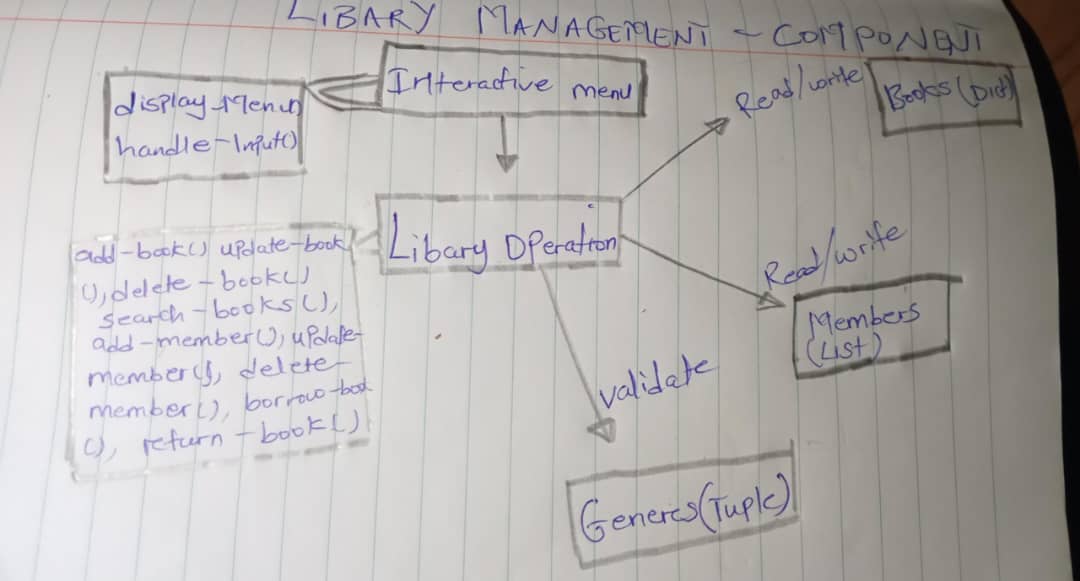 LIBARY MANAGEMENT - COMPONENT
Interactive menu
display-Menu()
handle-Input()
Read/write
Books (Dict)
Libary Operation
add-book() update-book
(), delete - book()
search - books(),
add - member(), update-
member(), delete-
member(), borrow-book
(), return - book()
Read/write
Members
(List)
validate
Generes (Tuple)